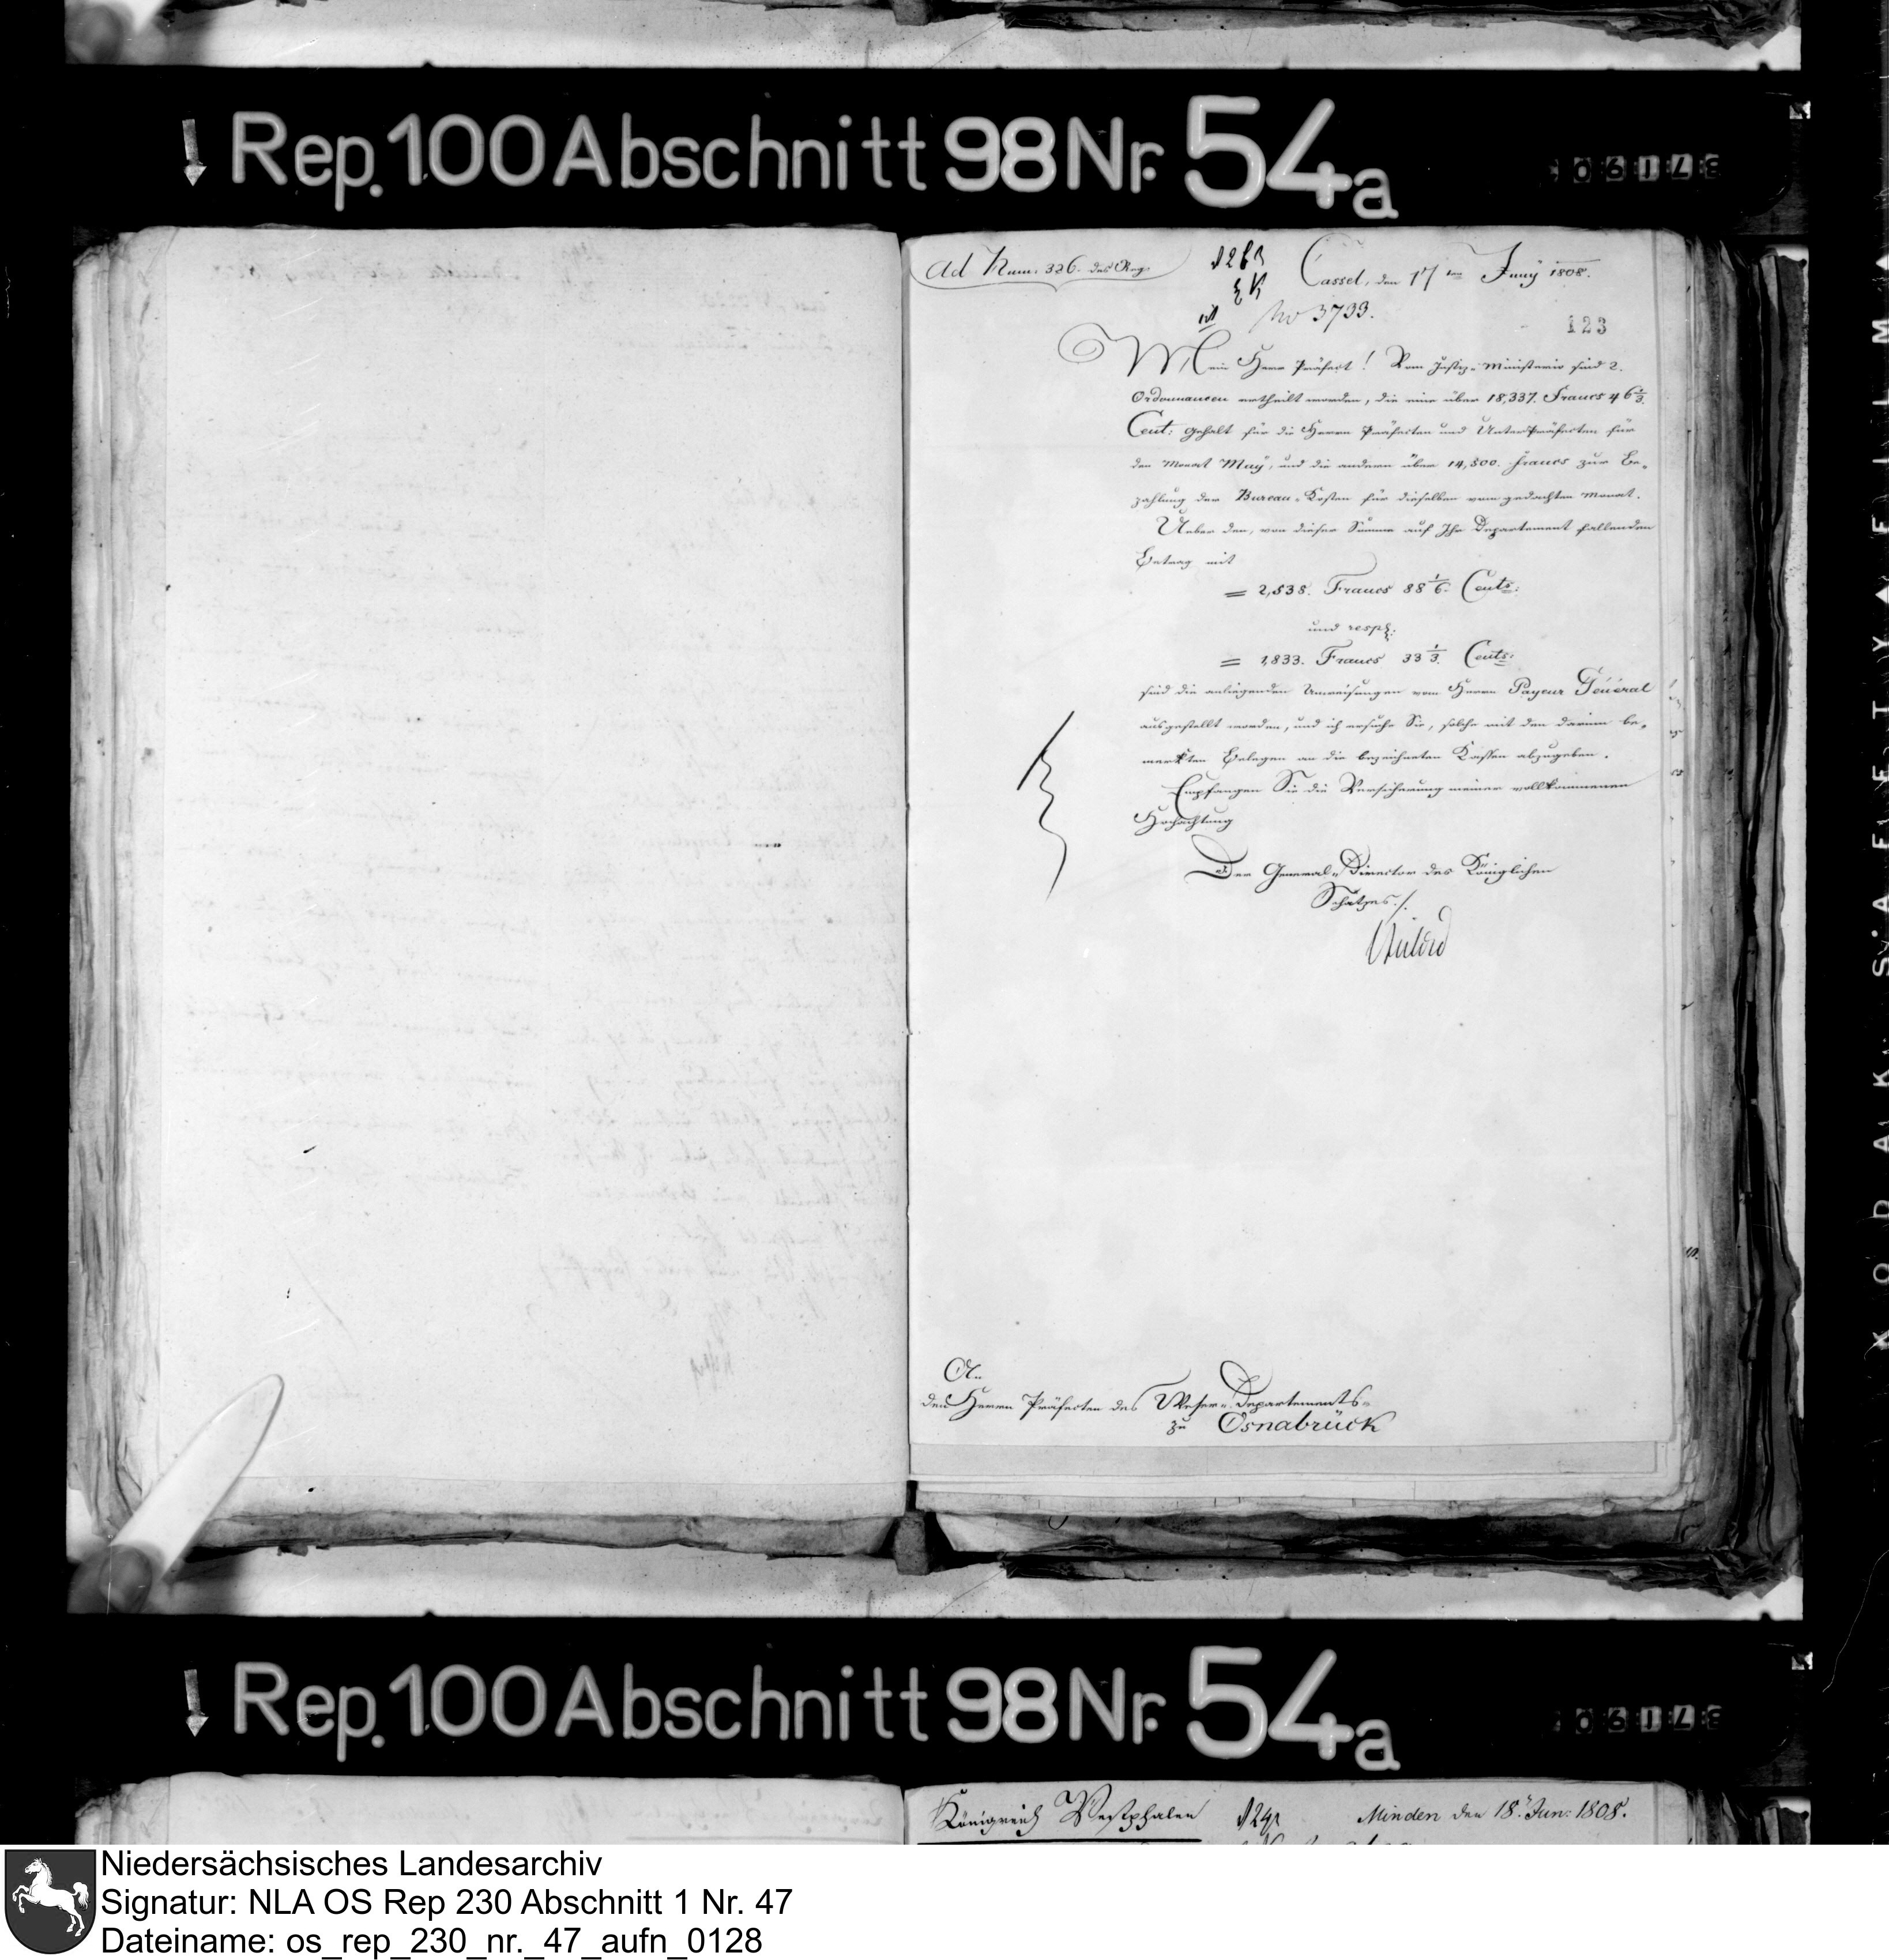 Rep. 100 Abschnitt 98 Nr. 54a
Ad Num. 326. des Reg.
Cassel, den 17ten Juny 1808.
No 3793.
123
Mein Herr Präfect! Vom Justiz-Ministerio sind 2.
Ordonnancen ertheilt worden, die eine über 18,337. Francs 46 2/3.
Cent: Gehalt für die Herren Präfecten und UnterPräfecten für
den Monat May, und die andere über 14,500. Francs zur Be-
zahlung der Bureau-Kosten für dieselben vom gedachten Monat.
Ueber den, von dieser Summe auf Ihr Departement fallenden
Betrag mit
= 2,838. Francs 88 1/6. Cents:
und resp.
= 1,833. Francs 33 1/3. Cents:
sind die anliegenden Anweisungen vom Herrn Payeur Général
ausgestellt worden, und ich ersuche Sie, solche mit den darinn be-
merkten Belegen an die bezeichneten Kassen abzugeben.
Empfangen Sie die Versicherung meiner vollkommenen
Hochachtung
Der General-Director des Königlichen
Schatzes./.
An
den Herrn Präfecten des Weser-Departements
zu Osnabrück
Rep. 100 Abschnitt 98 Nr. 54a
Königreich Westphalen
Minden den 18. Jun: 1808.
Niedersächsisches Landesarchiv
Signatur: NLA OS Rep 230 Abschnitt 1 Nr. 47
Dateiname: os_rep_230_nr._47_aufn_0128